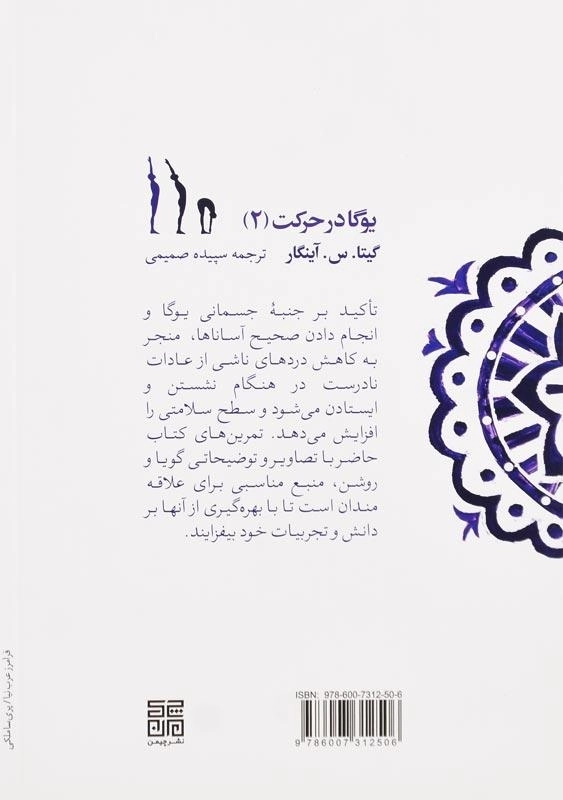 یوگا در حرکت (۲)
گیتا. س. آینگار ترجمه سپیده صمیمی
تأکید بر جنبهٔ جسمانی یوگا و
انجام دادن صحیح آساناها، منجر
به کاهش دردهای ناشی از عادات
نادرست در هنگام نشستن و
ایستادن می‌شود و سطح سلامتی را
افزایش می‌دهد. تمرین‌های کتاب
حاضر با تصاویر و توضیحاتی گویا و
روشن، منبع مناسبی برای علاقه
مندان است تا با بهره‌گیری از آنها بر
دانش و تجربیات خود بیفزایند.
ISBN: 978-600-7312-50-6
9 786007 312506
نشر چیمن
فرامرز عرب نیا / پری ساملکی